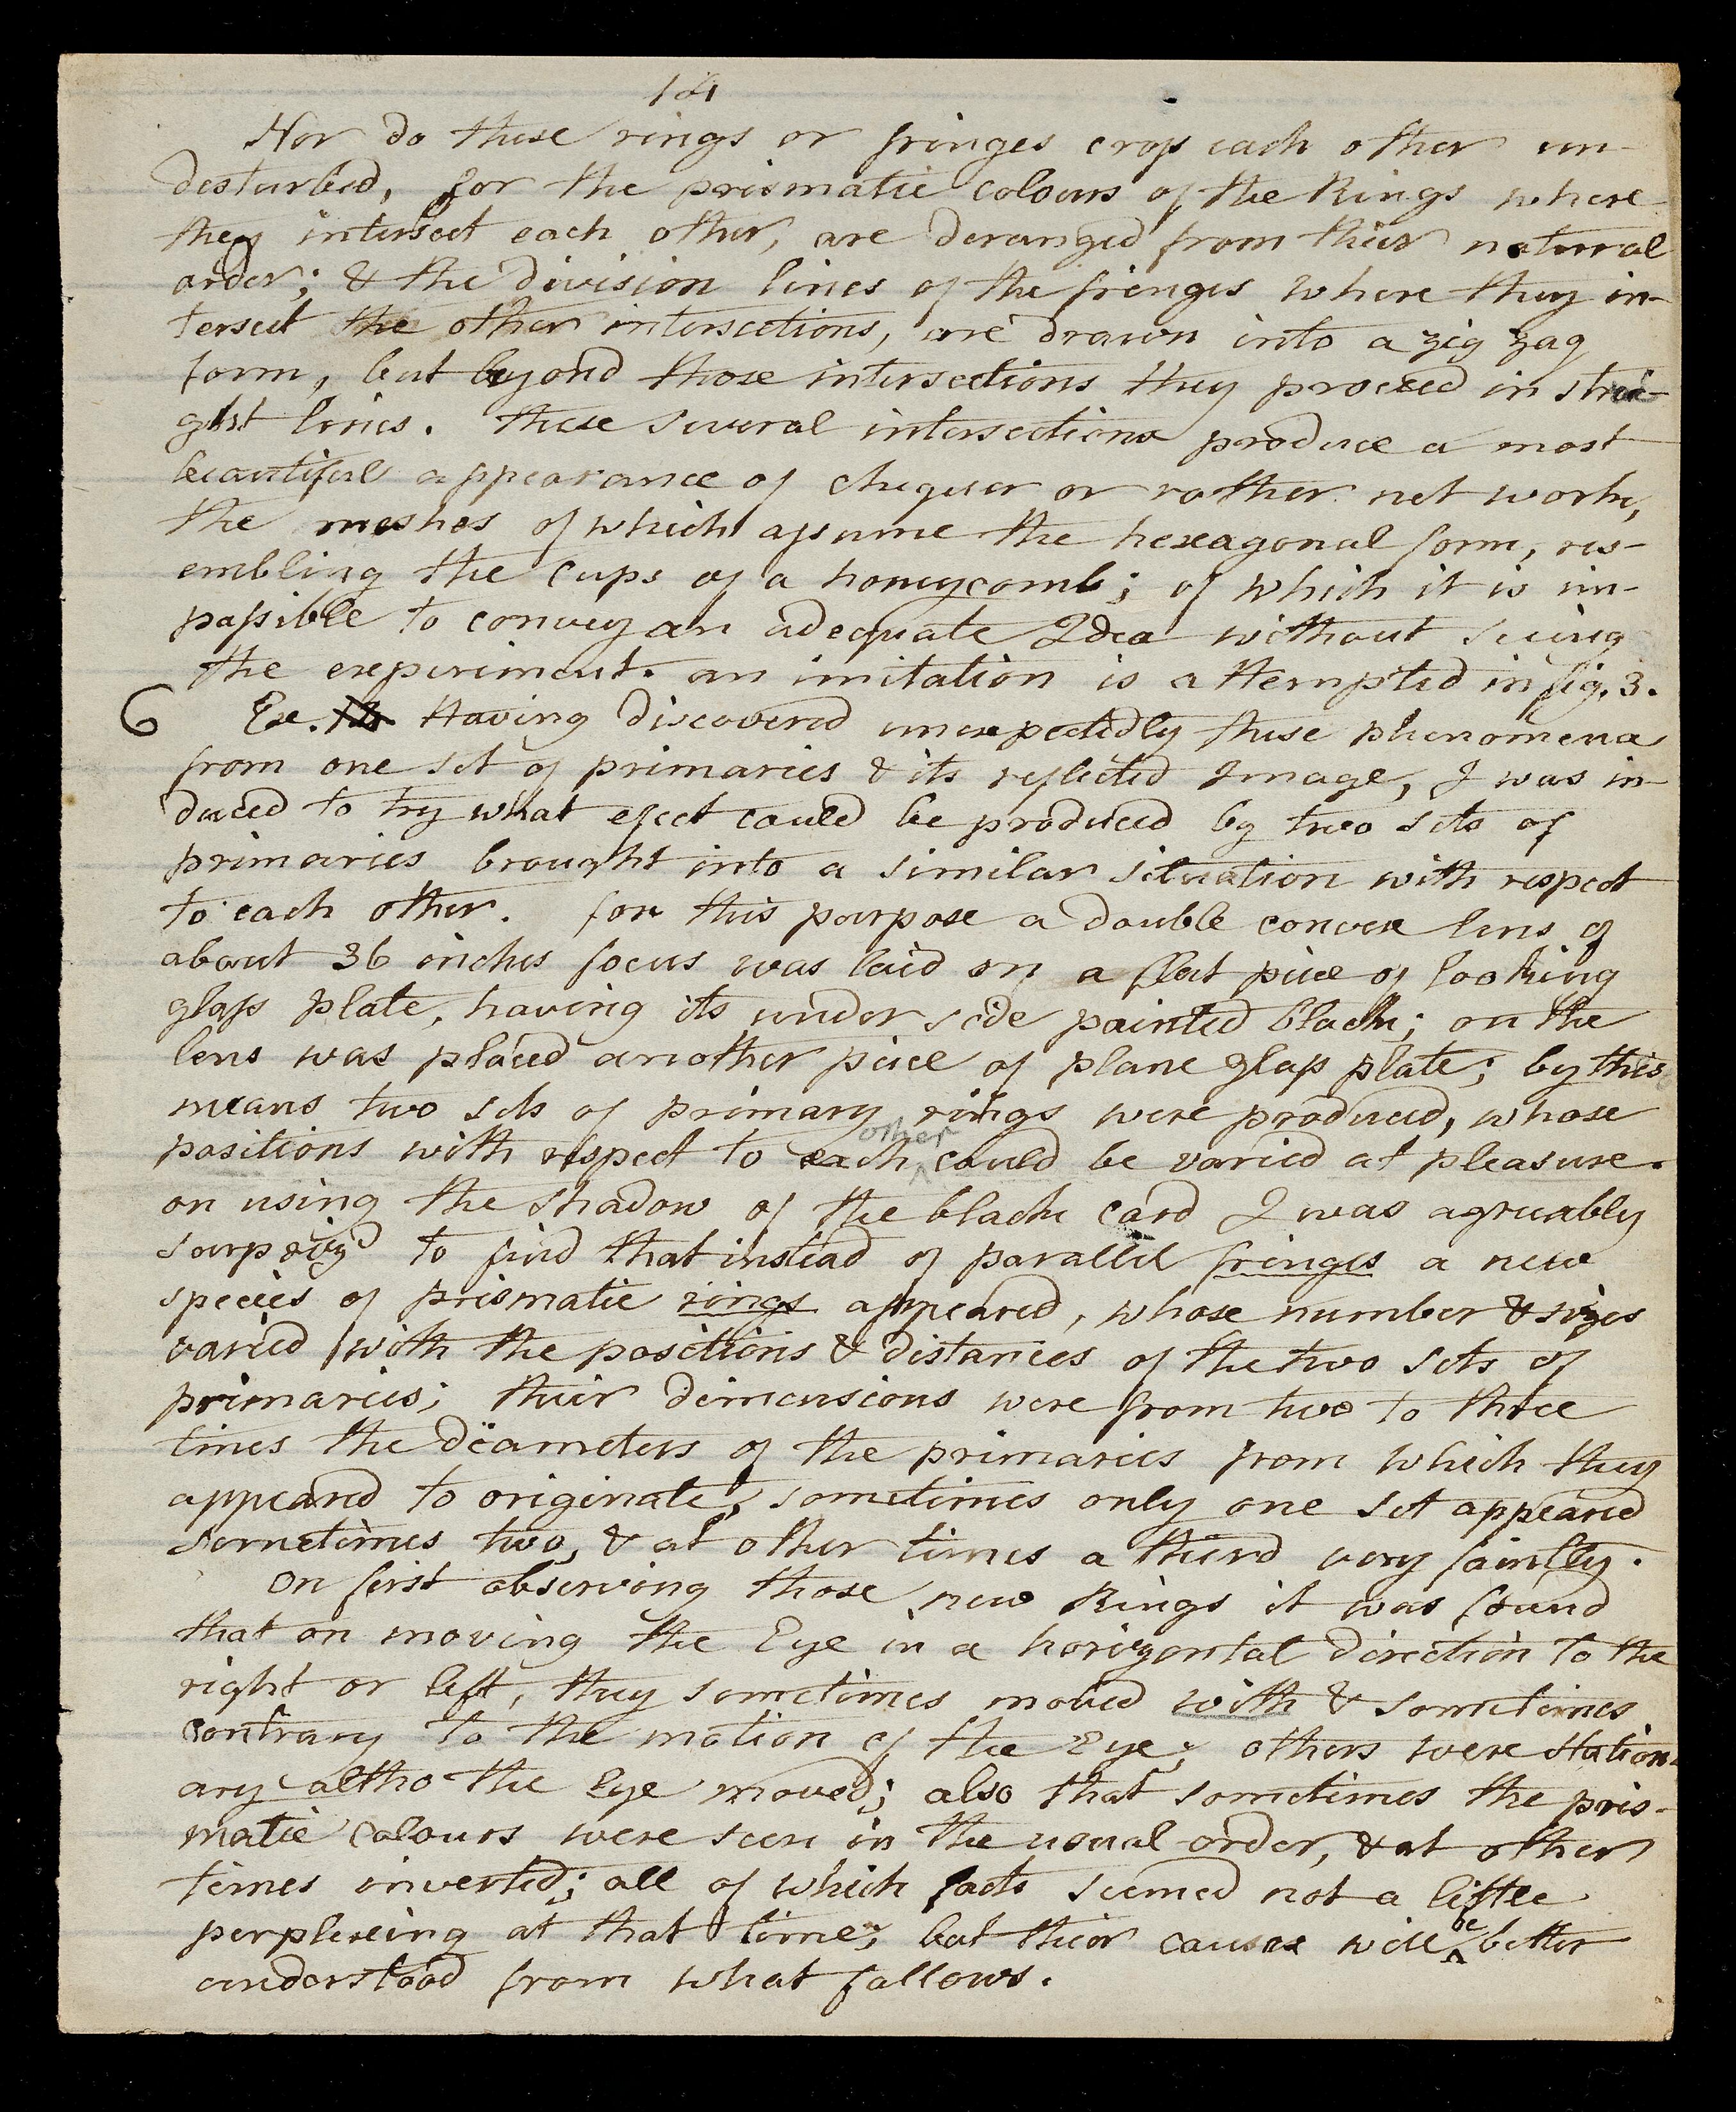 14
Nor do these rings or fringes cross each other un-
desturbed, for the prismatic colours of the Rings where
they intersect each other, are deranged from their natural
order; & the division lines of the fringes where they in-
tersect the other intersections, are drawn into a zig zag
form, but beyond those intersections they proceed in strai-
ght lines. These several intersections produce a most
beautiful appearance of chequer or rather net work,
the meshes of which assume the hexagonal form, res-
embling the cups of a honeycomb; of which it is im-
possible to convey an adequate Idea without seeing
the experiment. an imitation is attempted in fig. 3.
6 Ex. Having discovered unexpectedly these phenomena
from one set of primaries & its reflected Image, I was in-
duced to try what efect could be produced by two sets of
primaries brought into a similar situation with respect
to each other. for this purpose a double convex lens of
about 36 inches focus was laid on a flat piece of looking
glass plate, having its under side painted black; on the
lens was placed another piece of plane glass plate; by this
means two sets of primary rings were produced, whose
positions with respect to each other could be varied at pleasure.
on using the shadow of the black card I was agreeably
surpriz'd to find that instead of parallel fringes a new
species of prismatic rings appeared, whose number & sizes
varied with the positions & distances of the two sets of
primaries; their dimensions were from two to three
times the diameters of the primaries from which they
appeared to originate, sometimes only one set appeared
sometimes two, & at other times a third very faintly.
On first observing those new Rings it was found
that on moving the Eye in a horizontal direction to the
right or left, they sometimes moved with & sometimes
contrary to the motion of the Eye; others were station-
ary altho the Eye moved; also that sometimes the pris-
matic colours were seen in the usual order, & at other
times inverted; all of which facts seemed not a little
perplexing at that time; but their causes will be better
understood from what follows.